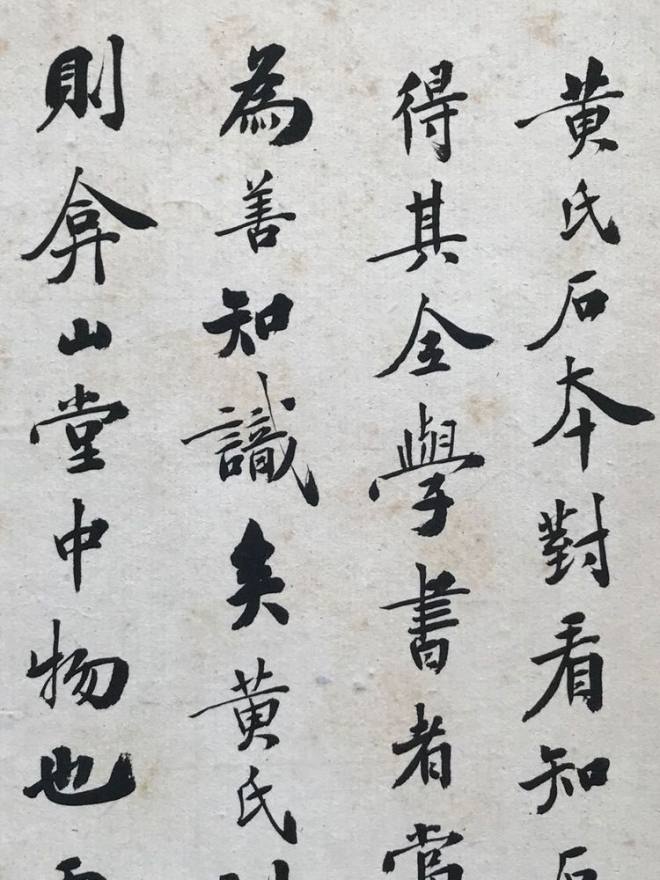 黄氏石本對看知石
得其全學書者當
為善知識矣黄氏
則弇山堂中物也